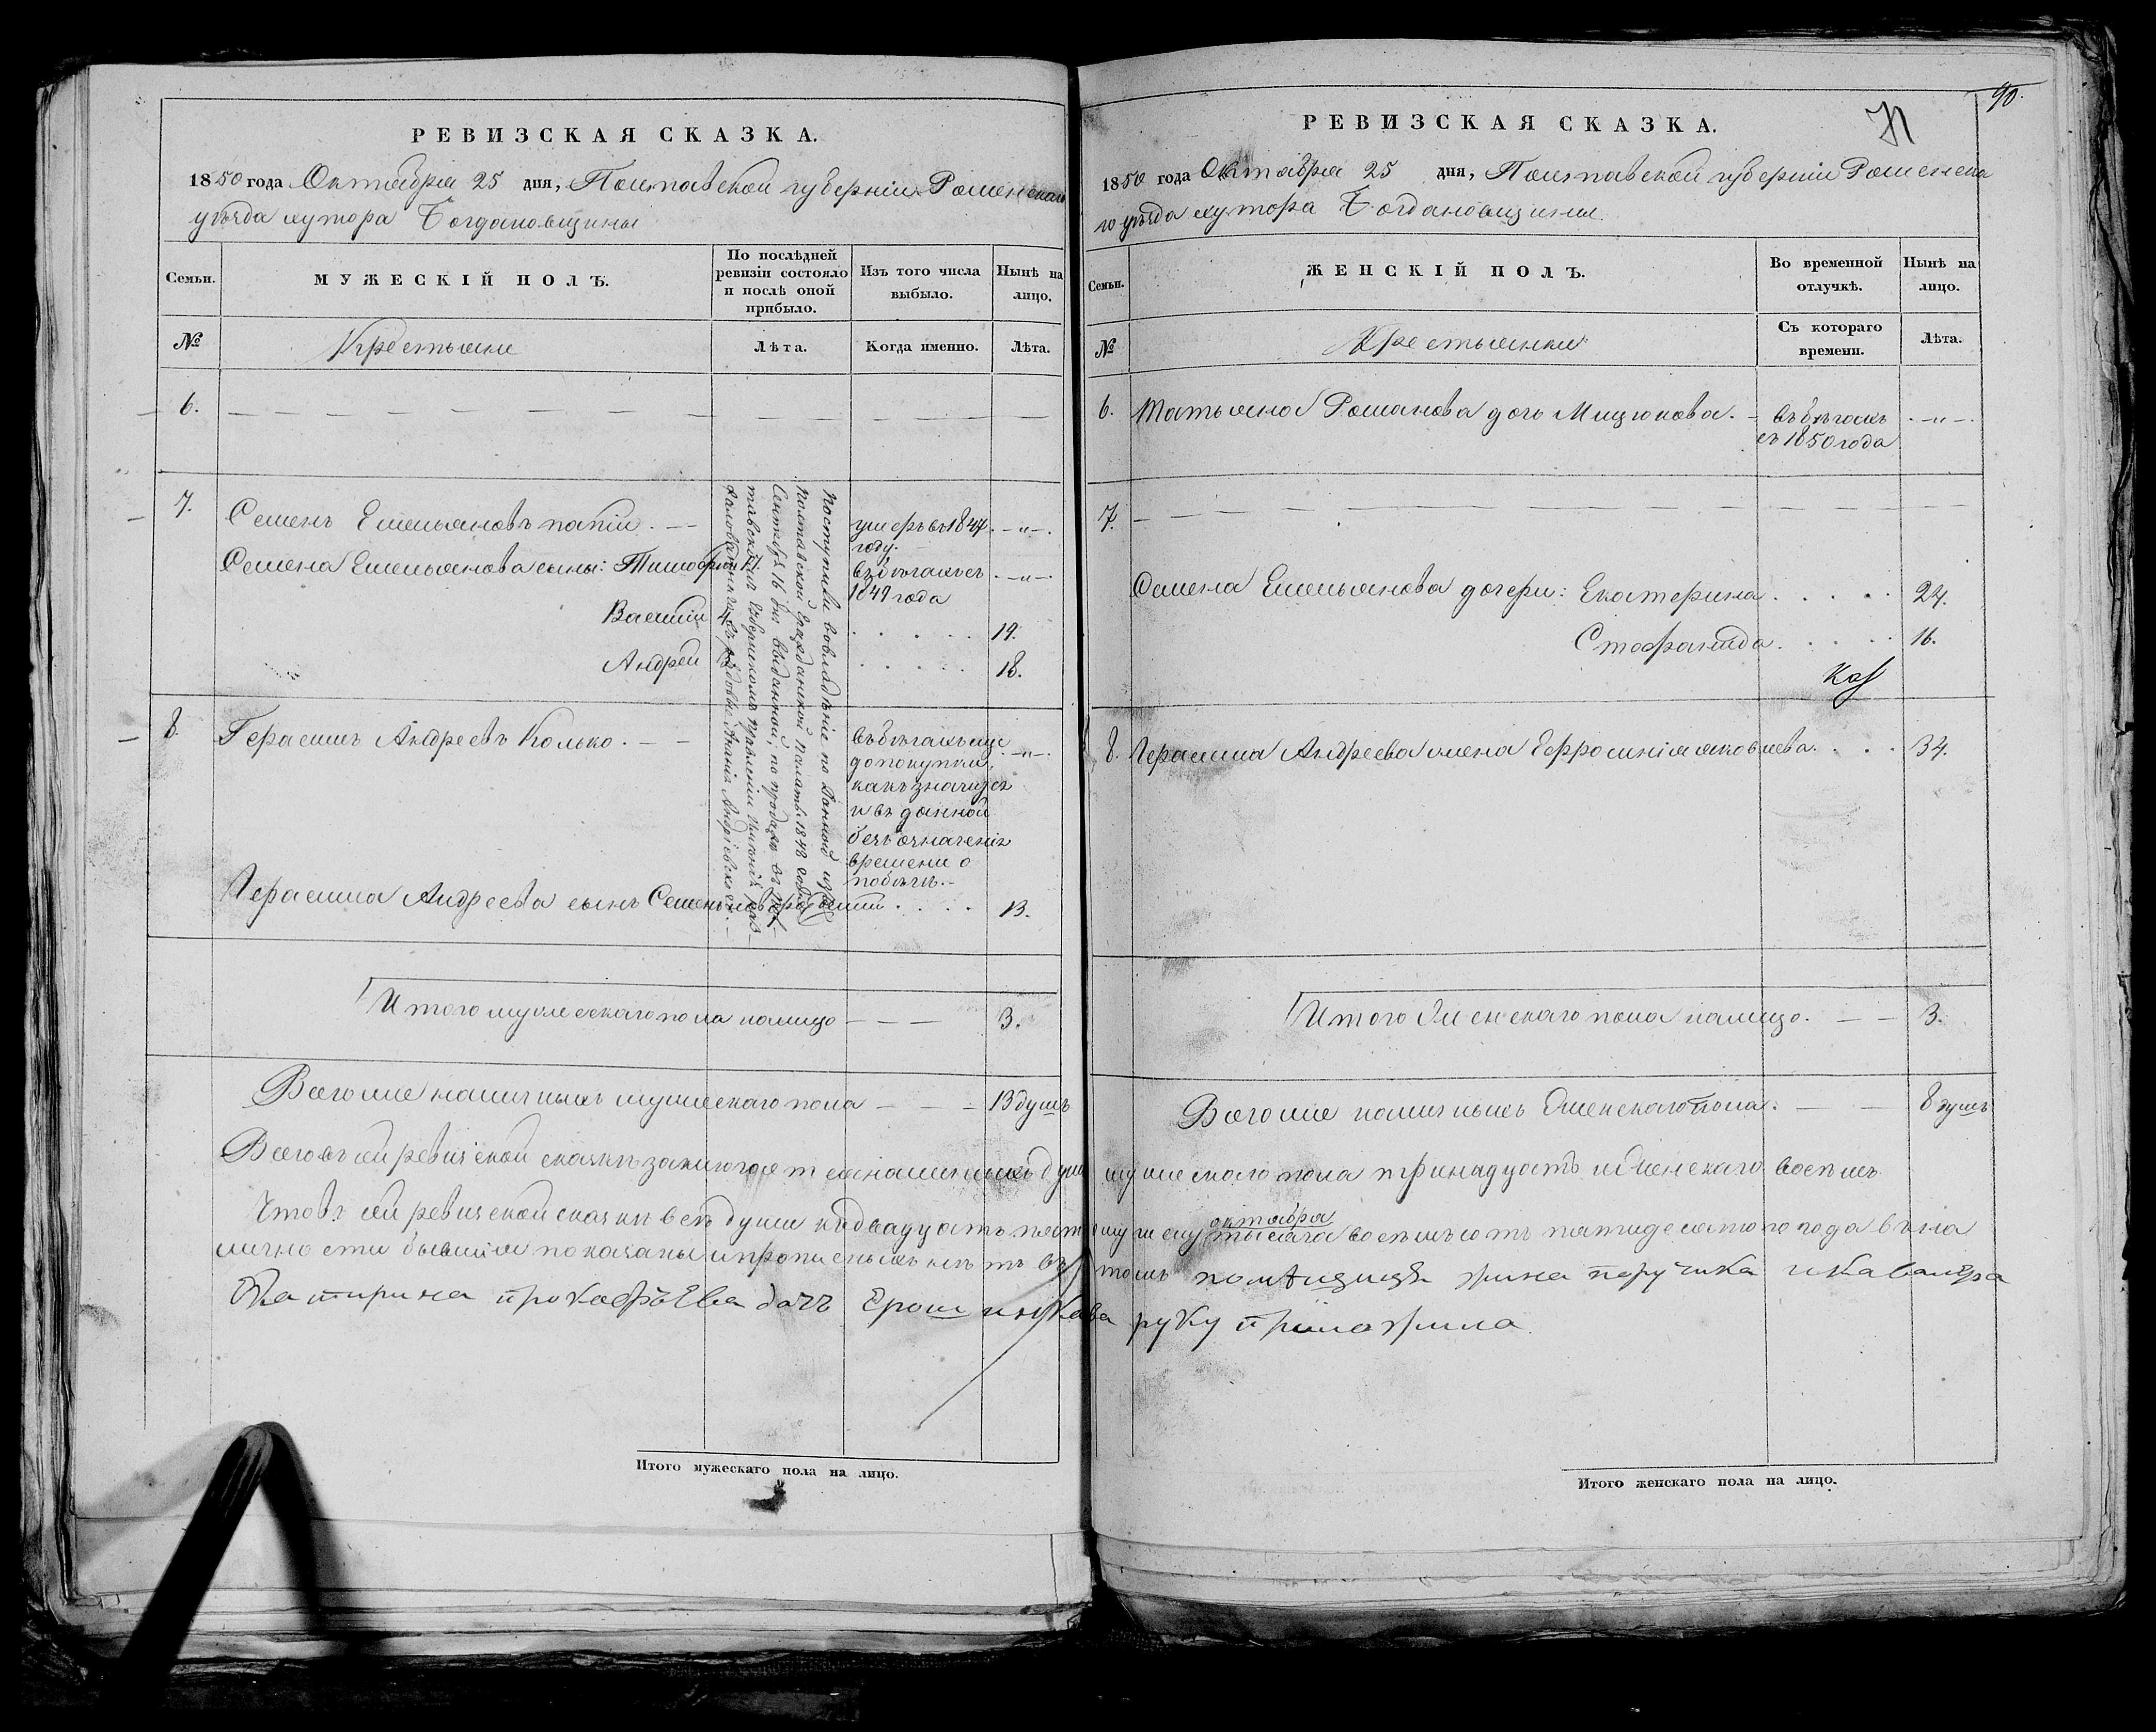 РЕВИЗСКАЯ СКАЗКА.
1850 года Октября 25 дня, Полтавской губерніи Роменскаго
уѣзда хутора Богдановщины
Семьи.
МУЖЕСКІЙ ПОЛЪ.
По послѣдней
ревизіи состояло
и послѣ оной
прибыло.
Изъ того числа
выбыло.
Нынѣ на
лицо.
№
Крестьяне
Лѣта.
Когда именно.
Лѣта.
6.
7.
Семенъ Емельяновъ
умеръ въ 1847
году.
Семена Емельянова сыны: Тимофей
въ бѣгахъ съ
1849 года
Василій
19.
Андрей
18.
Поступили во владѣніе по данной изъ
Полтавской Гражданской палаты 1848 года
Сентября 16 дня выданной, по продажѣ въ Пол-
тавскомъ Губернскомъ Правленіи имѣнія
вдовы Анны
8.
Герасимъ Андреевъ Колько.
въ бѣгахъ еще
до покупки,
какъ значится
и въ данной
безъ означенія
времени о
побѣгѣ.
Герасима Андреева сынъ Семенъ
13.
Итого мужескаго пола налицо
3.
Всего же наличныхъ мужескаго пола
13 душъ
РЕВИЗСКАЯ СКАЗКА.
90.
1850 года Октября 25 дня, Полтавской губерніи Роменска
го уѣзда хутора Богдановщины.
Семьи.
ЖЕНСКІЙ ПОЛЪ.
Во временной
отлучкѣ.
Нынѣ на
лицо.
№
Крестьянки
Съ котораго
времени.
Лѣта.
6.
Татьяна Романова дочь Мицюкова.
въ бѣгахъ
съ 1850 года
7.
Семена Емельянова дочери: Екатерина
24.
Стефанида
16.
8.
Герасима Андреева жена Ефросинія Яковлева
34.
Итого женскаго пола налицо.
3.
Всего же наличныхъ женскаго пола.
8 душъ
Всего въ сей ревизской сказкѣ заключается наличныхъ душъ мужескаго пола тринадцать и женскаго восемь
Что въ сей ревизской сказкѣ всѣ души къ двадцать пятому октября тысяча восемьсотъ пятидесятого года въ на
личности бывшія показаны и прописныхъ нѣтъ въ томъ помѣщица жина поручика и кавалера
Катирина прокофьева дочъ Ерошинкова руку приложила
Итого мужескаго пола на лицо.
Итого женскаго пола на лицо.